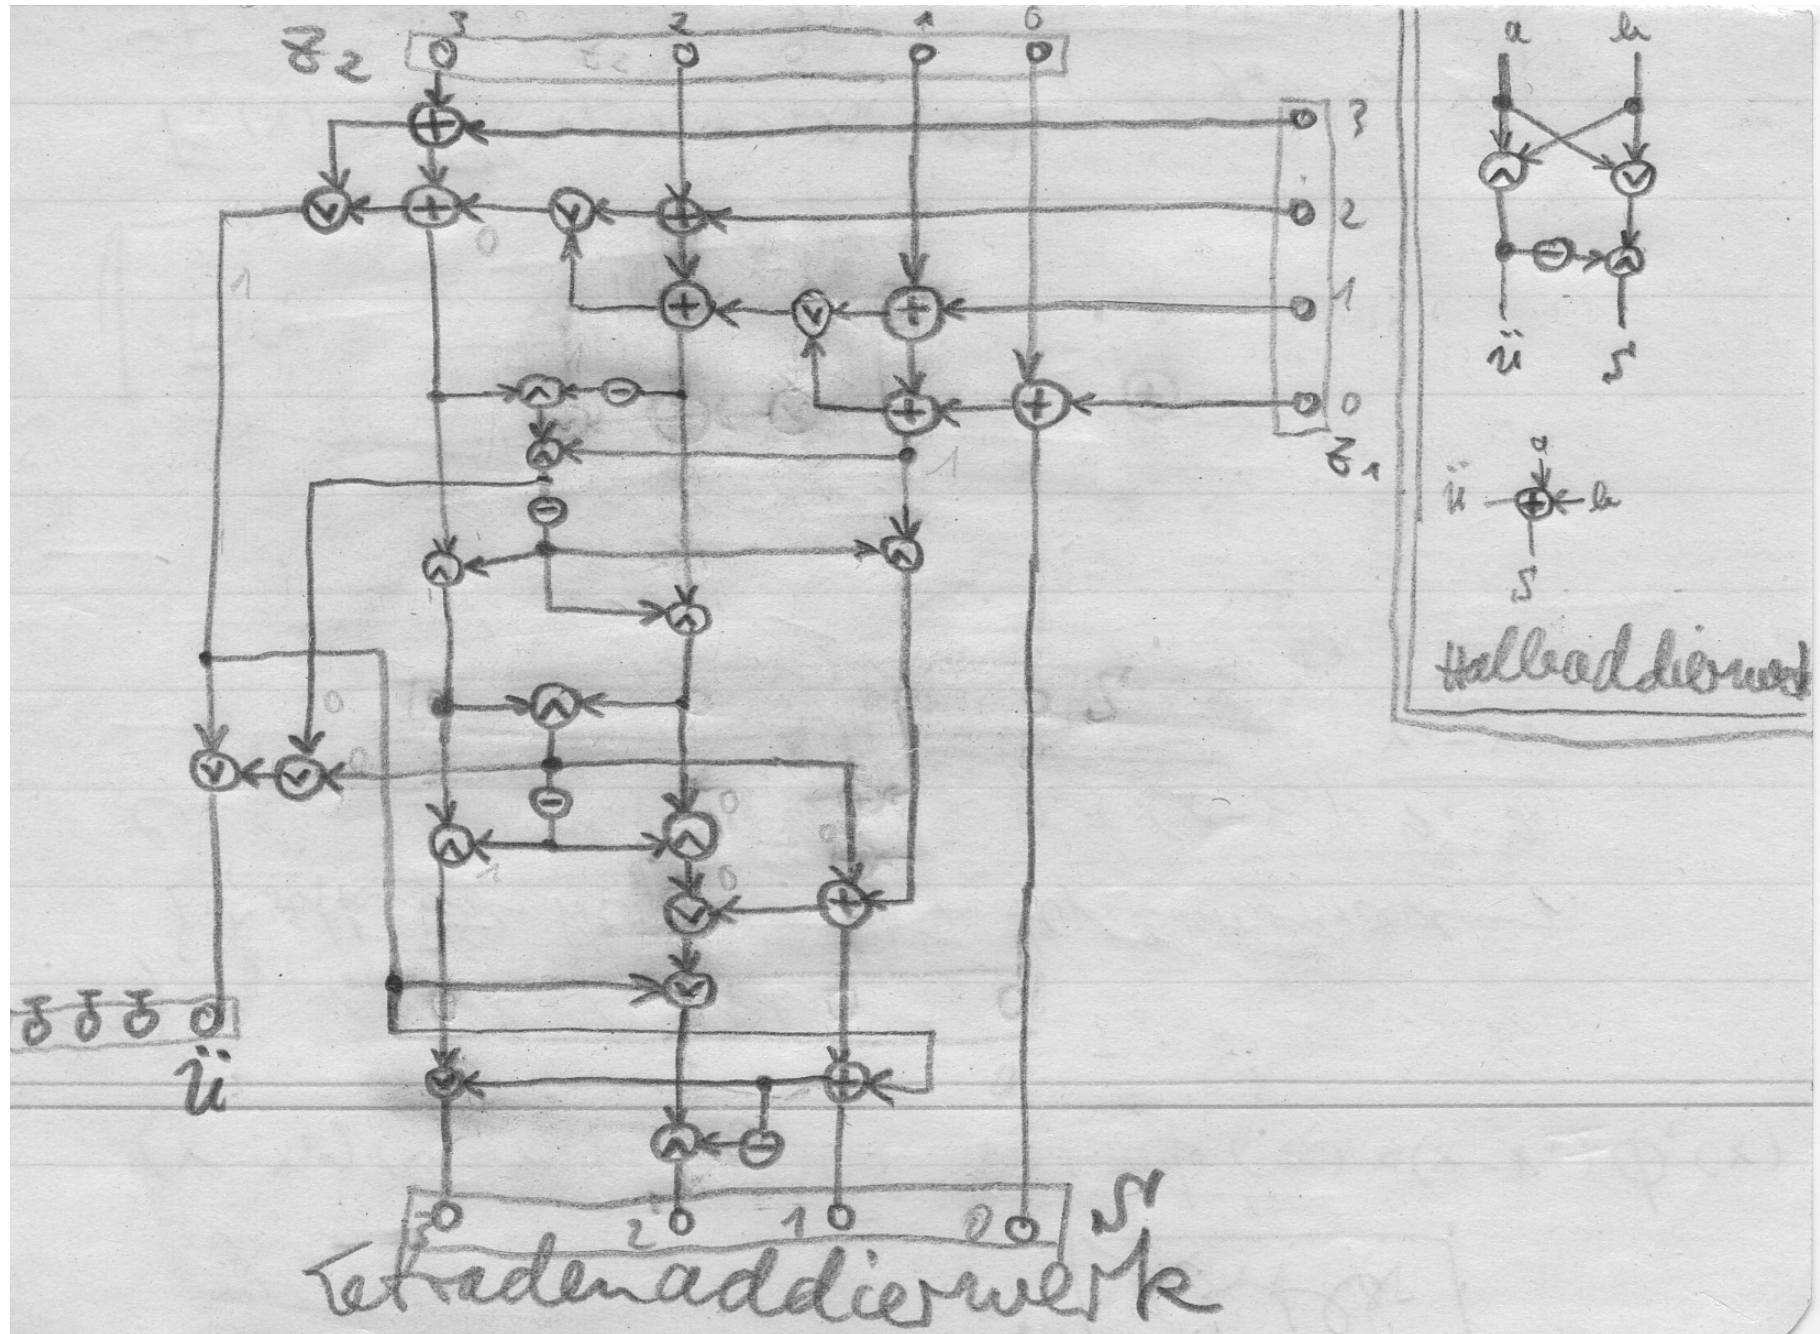 3 2 1 0
Z₂
3
2
1
0
Z₁
ü
3 2 1 0 S
Tetradenaddierwerk
a b
ü S
a
ü b
S
Halbaddierwerk